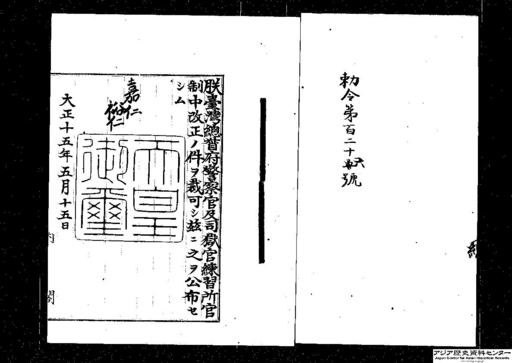 勅令第百二十六號
朕臺灣總督府警察官及司獄官練習所官
制中改正ノ件ヲ裁可シ茲ニ之ヲ公布セ
シム
嘉仁
裕仁
天皇御璽
大正十五年五月十五日
内閣
アジア歴史資料センター
Japan Center for Asian Historical Records